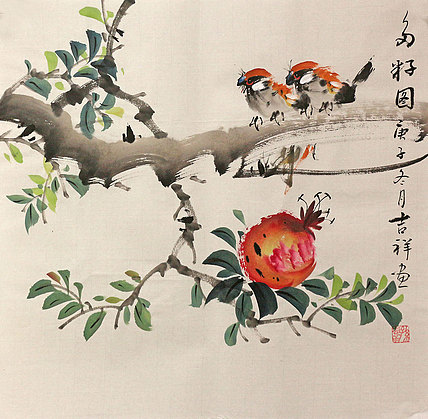 多籽图庚子冬月吉祥画